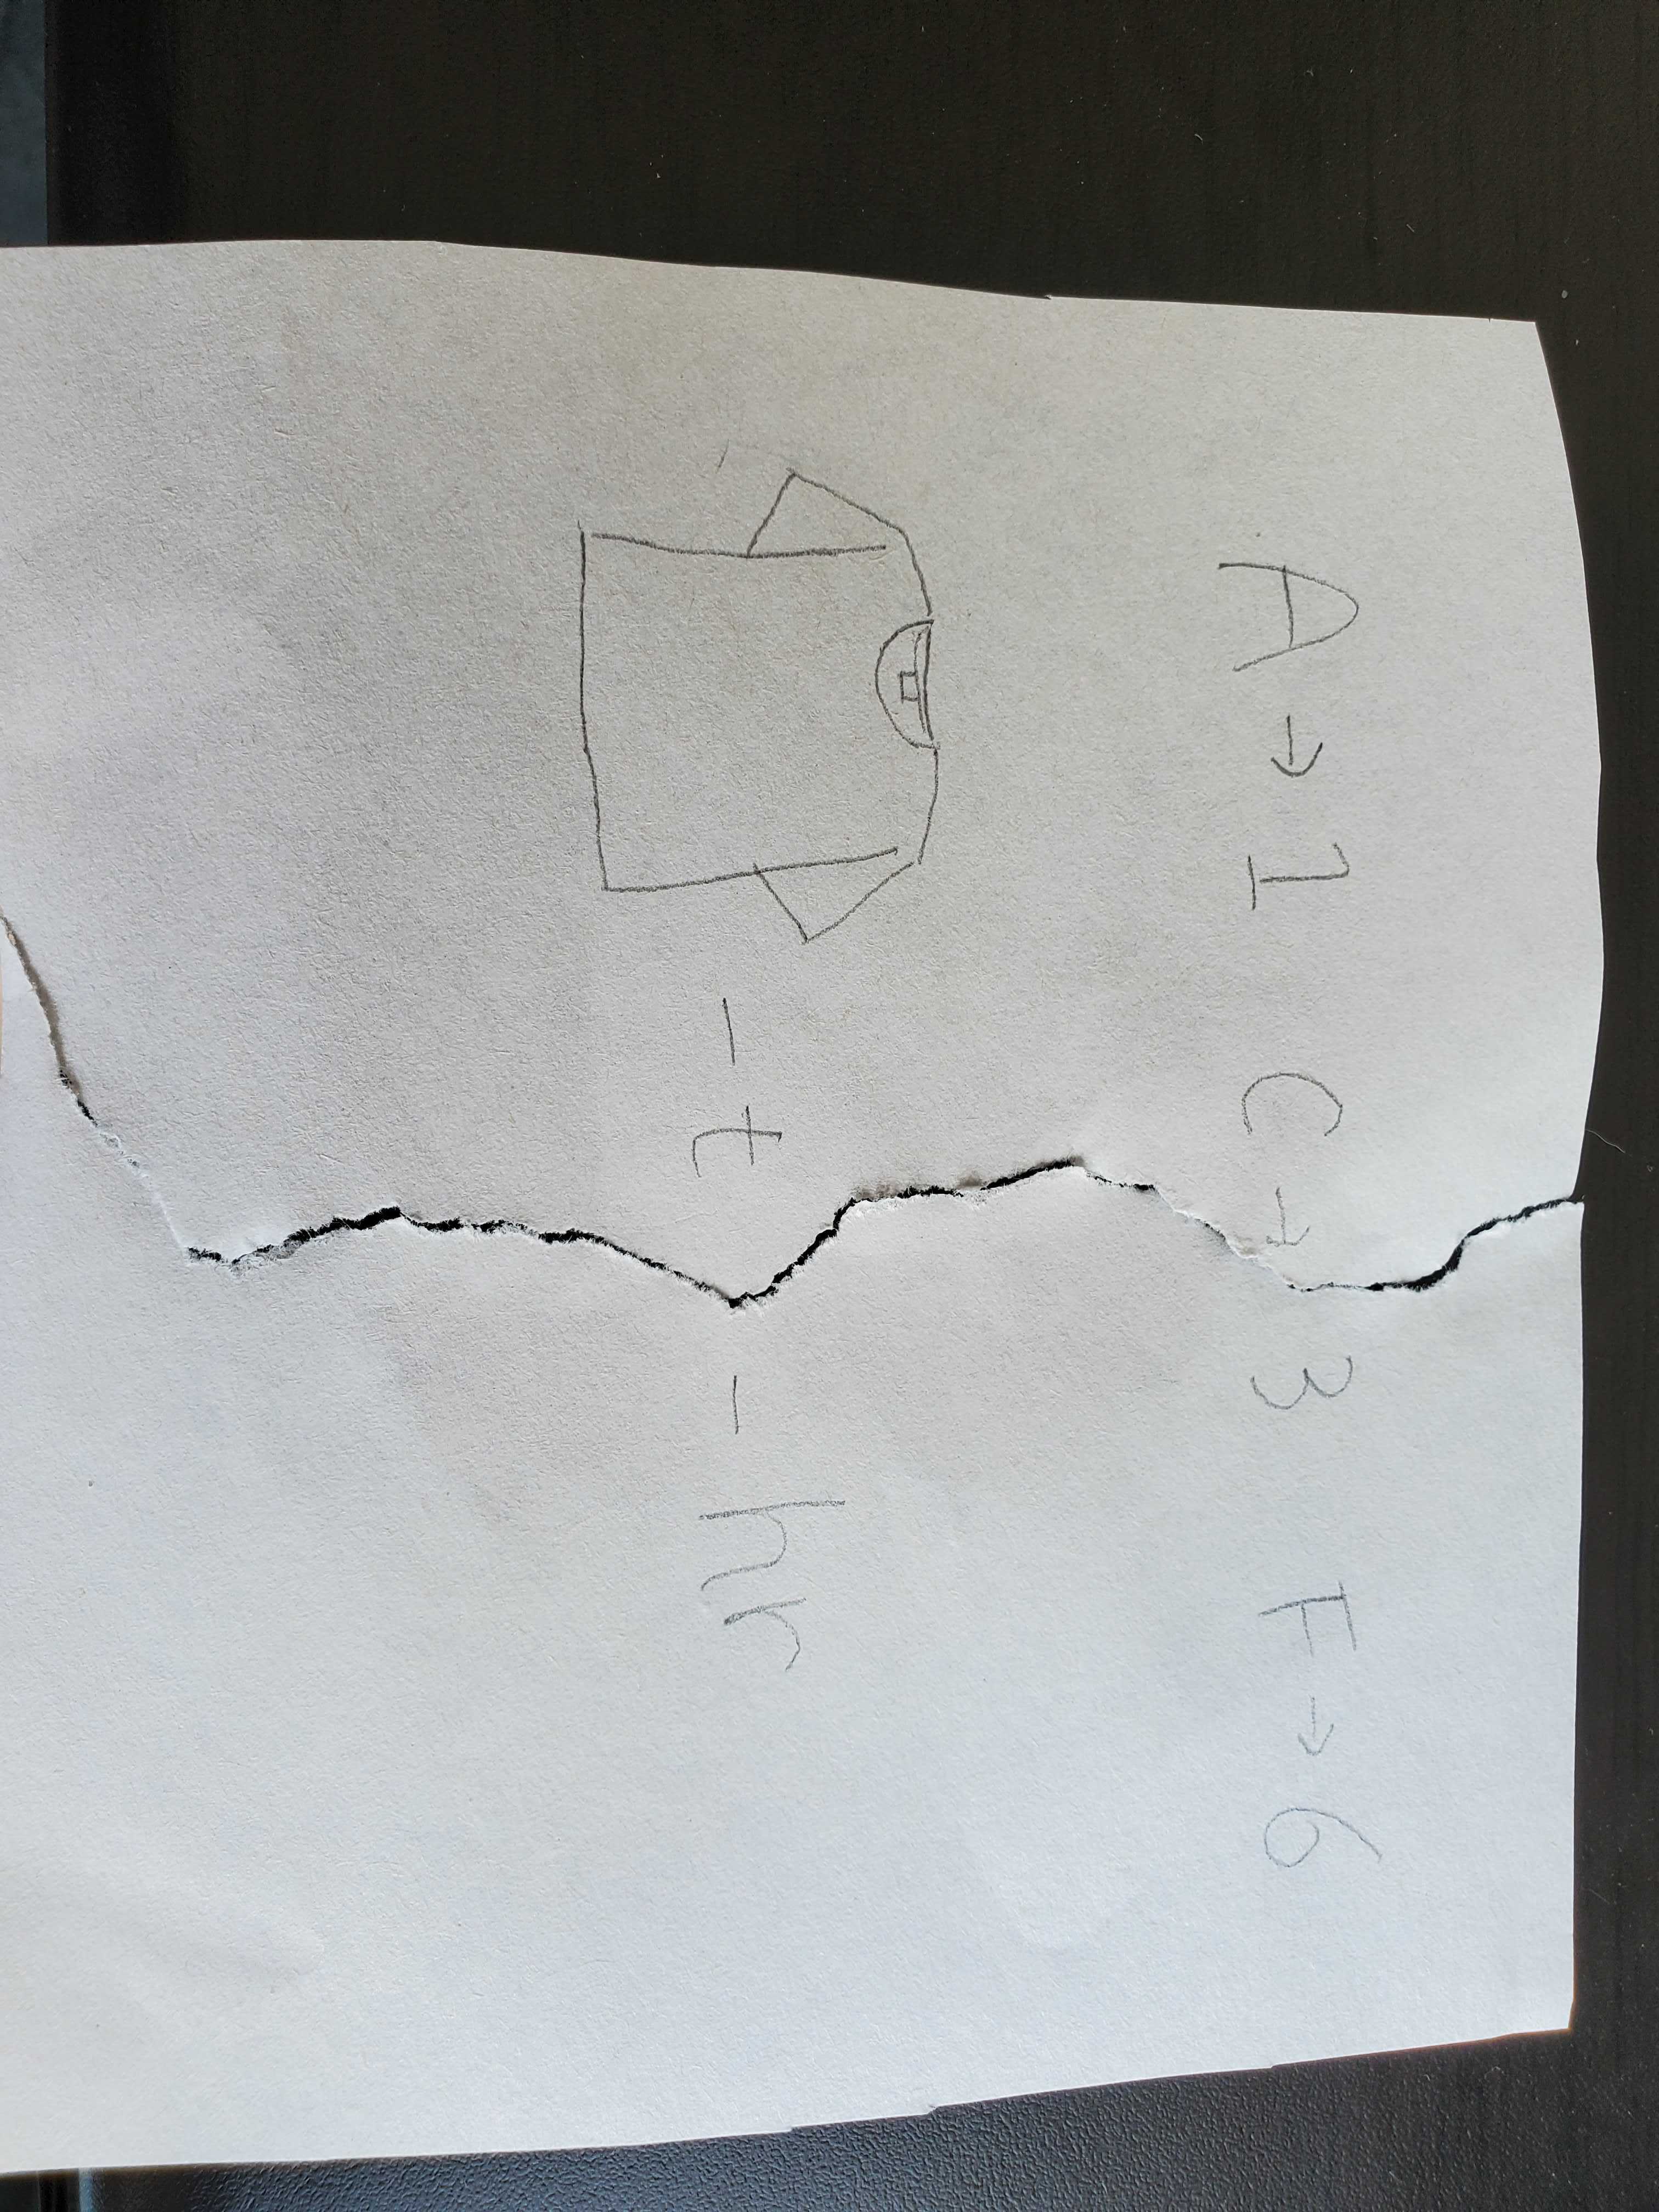 A → 1 C → 3 F → 6
- t - hr